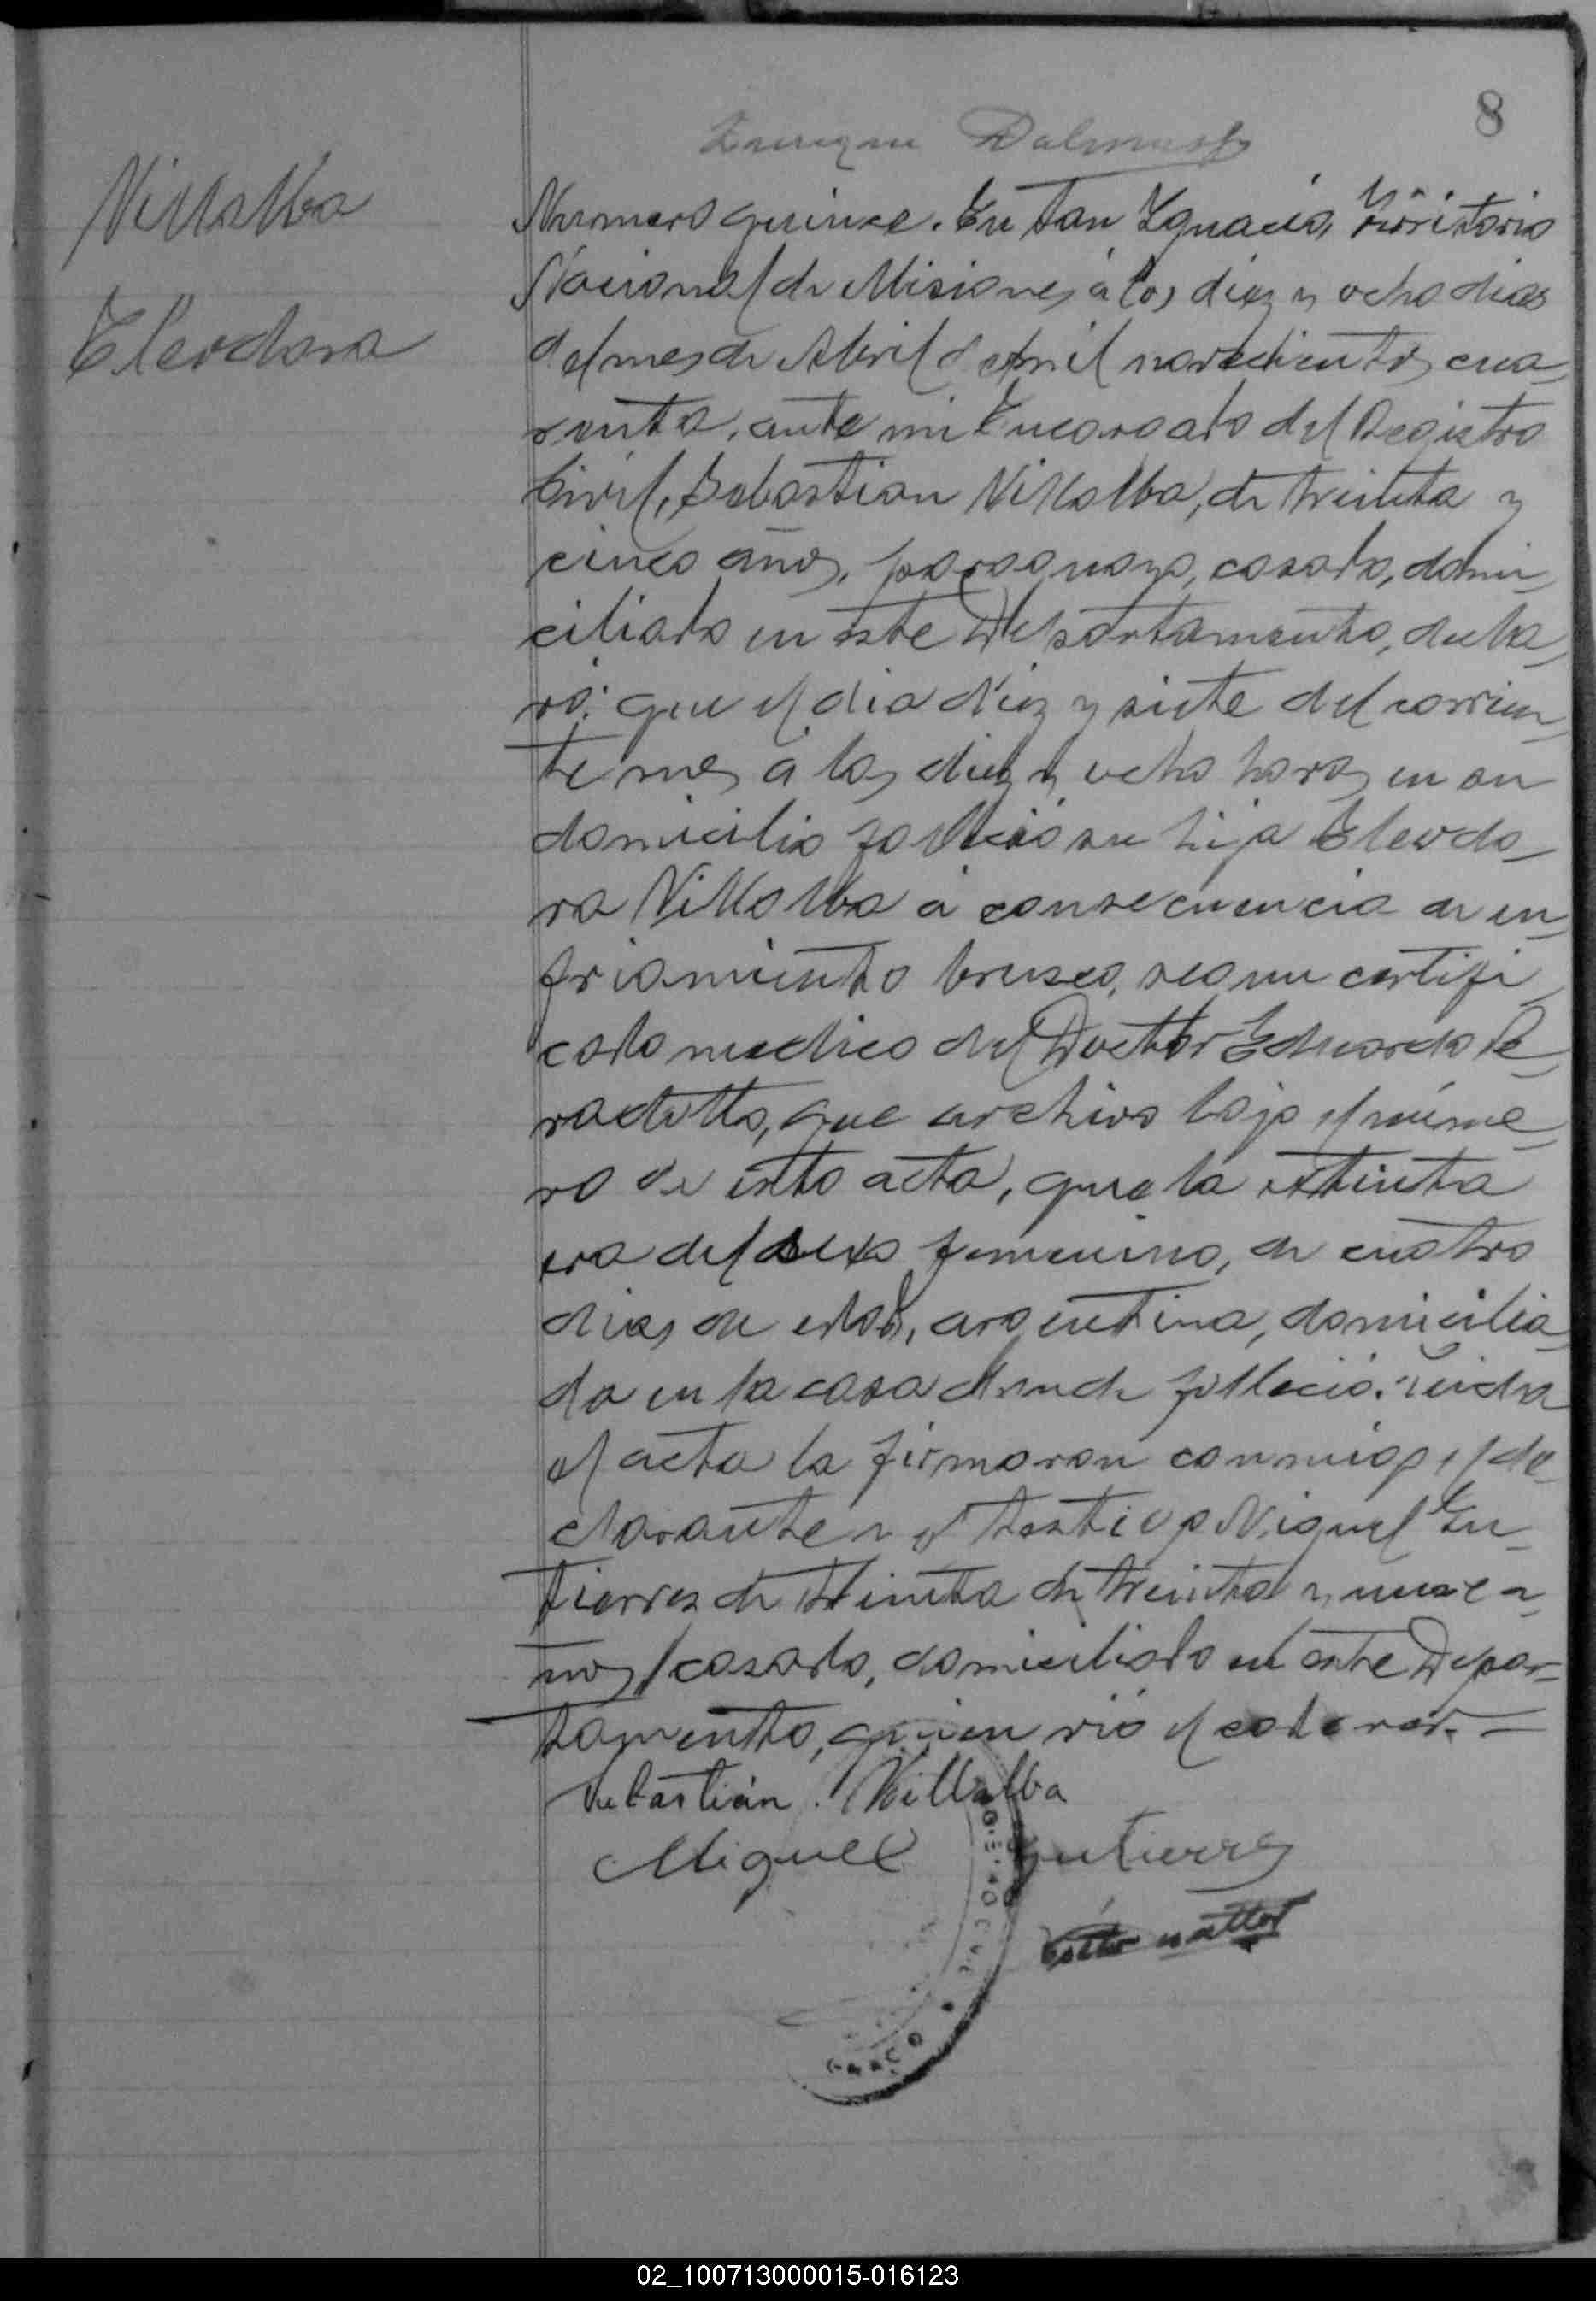 8
Enrique Dalmust
Villalba
Eleodora
Numero quince. En San Ygnacio, Territorio
Nacional de Misiones, á los diez y ocho dias
del mes de Abril de mil novecientos cua-
renta, ante mi Encargado del Registro
Civil, Sebastian Villalba, de treinta y
cinco años, paraguayo, casado, domi-
ciliado en este Departamento, decla-
ró: que el dia diez y siete del corrien-
te mes á las diez y ocho horas en su
domicilio falleció su hija Eleodo-
ra Villalba á consecuencia de en-
friamiento brusco, segun certifi-
cado medico del Doctor Eduardo
que archivo bajo el núme-
ro de esta acta, que la extinta
era del sexo femenino, de cuatro
dias de edad, argentina, domicilia-
da en la casa donde falleció. Leida
el acta la firmaron conmigo el de-
clarante y el testigo Miguel Gu-
tierrez de treinta de treinta y nueve a-
ños, casado, domiciliado en este Depar-
tamento, quien vió el cadaver.—
Sebastián. Villalba
Miguel Gutierrez
02_100713000015-016123